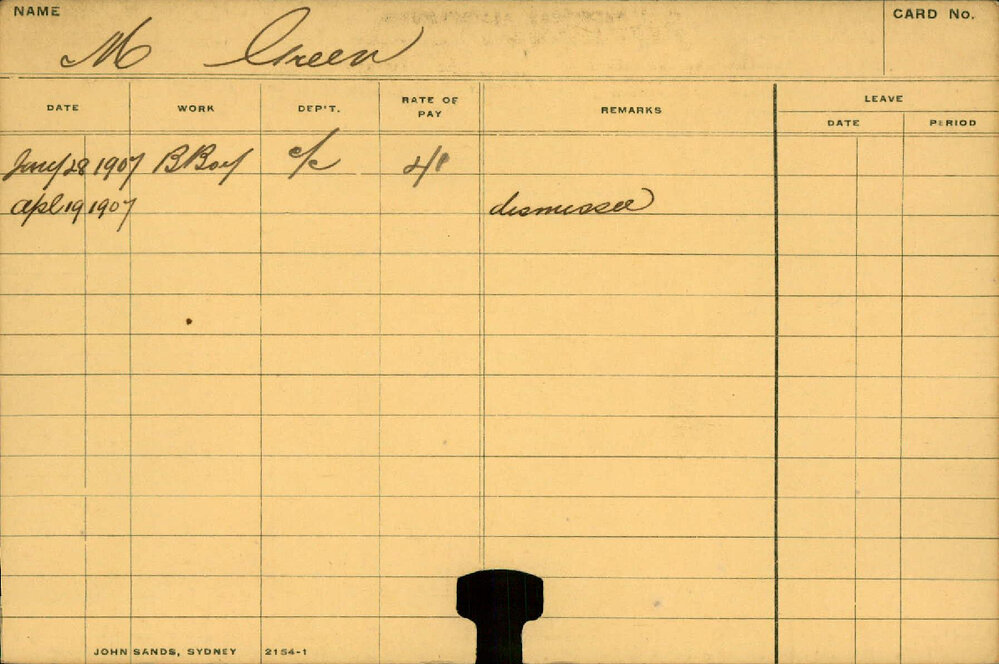 NAME
CARD No.
M Green
DATE WORK DEP'T. RATE OF PAY REMARKS LEAVE
DATE PERIOD
Jany 28 1907 B Boy c/c
Apl 19 1907 dismissed
JOHN SANDS, SYDNEY 2154-1